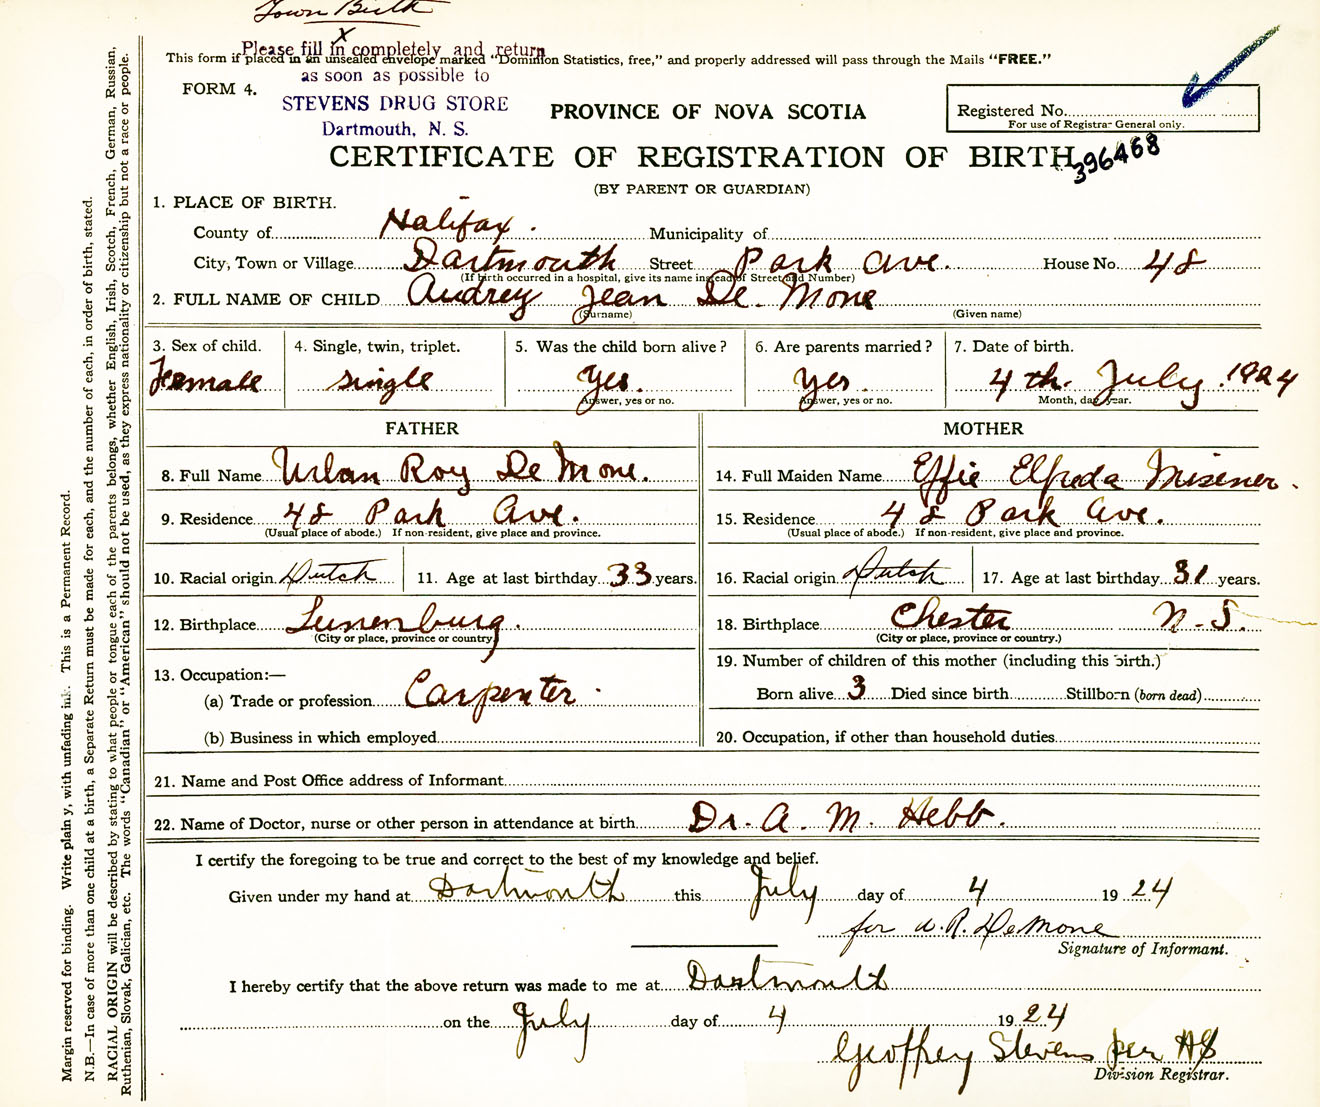 Town Birth
x
Please fill in completely and return
This form if placed in an unsealed envelope marked "Dominion Statistics, free," and properly addressed will pass through the Mails "FREE."
as soon as possible to
FORM 4.
STEVENS DRUG STORE
Dartmouth, N. S.
PROVINCE OF NOVA SCOTIA
Registered No.
For use of Registrar General only.
CERTIFICATE OF REGISTRATION OF BIRTH
396468
(BY PARENT OR GUARDIAN)
1. PLACE OF BIRTH.
County of Halifax. Municipality of
City, Town or Village Dartmouth Street Park Ave. House No. 48
(If birth occurred in a hospital, give its name instead of Street and Number)
2. FULL NAME OF CHILD Audrey Jean De Mone
(Surname) (Given name)
3. Sex of child. 4. Single, twin, triplet. 5. Was the child born alive? 6. Are parents married? 7. Date of birth.
Female single Yes. Yes 4th. July. 1924
Answer, yes or no. Answer, yes or no. Month, day, year.
FATHER MOTHER
8. Full Name Urban Roy De Mone. 14. Full Maiden Name Effie Elfreda Misener.
9. Residence 48 Park Ave. 15. Residence 48 Park Ave.
(Usual place of abode.) If non-resident, give place and province. (Usual place of abode.) If non-resident, give place and province.
10. Racial origin Dutch 11. Age at last birthday 33 years. 16. Racial origin Dutch 17. Age at last birthday 31 years.
12. Birthplace Lunenburg. 18. Birthplace Chester N.S.
(City or place, province or country) (City or place, province or country.)
13. Occupation:— 19. Number of children of this mother (including this birth.)
(a) Trade or profession Carpenter. Born alive 3 Died since birth Stillborn (born dead)
(b) Business in which employed 20. Occupation, if other than household duties
21. Name and Post Office address of Informant
22. Name of Doctor, nurse or other person in attendance at birth Dr. A. M. Hebb.
I certify the foregoing to be true and correct to the best of my knowledge and belief.
Given under my hand at Dartmouth this July day of 4 1924
for U. R. DeMone
Signature of Informant.
I hereby certify that the above return was made to me at Dartmouth
on the July day of 4 1924
Geoffrey Stevens per HS
Division Registrar.
Margin reserved for binding. Write plainly, with unfading ink. This is a Permanent Record.
N.B.—In case of more than one child at a birth, a Separate Return must be made for each, and the number of each, in order of birth, stated.
RACIAL ORIGIN will be described by stating to what people or tongue each of the parents belongs, whether English, Irish, Scotch, French, German, Russian,
Ruthenian, Slovak, Galician, etc. The words "Canadian" or "American" should not be used, as they express nationality or citizenship but not a race or people.